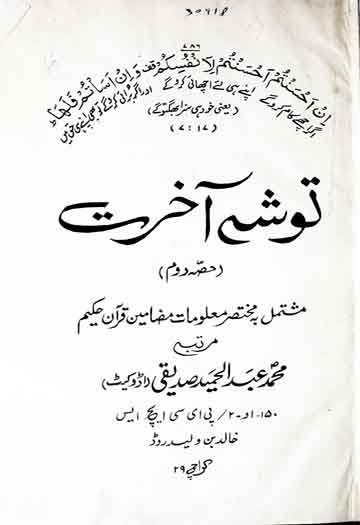 30918
۷۸۶
اِنْ اَحْسَنْتُمْ اَحْسَنْتُمْ لِاَنْفُسِكُمْ وقف وَاِنْ اَسَاْتُمْ فَلَهَا ط
اگر اچھے کام کرو گے اپنے ہی لئے اچھائی کرو گے اور اگر برائی کرو گے تو بھی اپنے ہی حق میں
(یعنی خود ہی سزا بھگتو گے)
(۷ : ۱۷)
توشہ آخرت
(حصّہ دوم)
مشتمل بہ مختصر معلومات مضامین قرآن حکیم
مرتبہ
محمد عبد الحمید صدیقی (اڈوکیٹ)
۱۵۰-او-۲/ پی ای سی ایچ ایس
خالد بن ولید روڈ
کراچی ۲۹